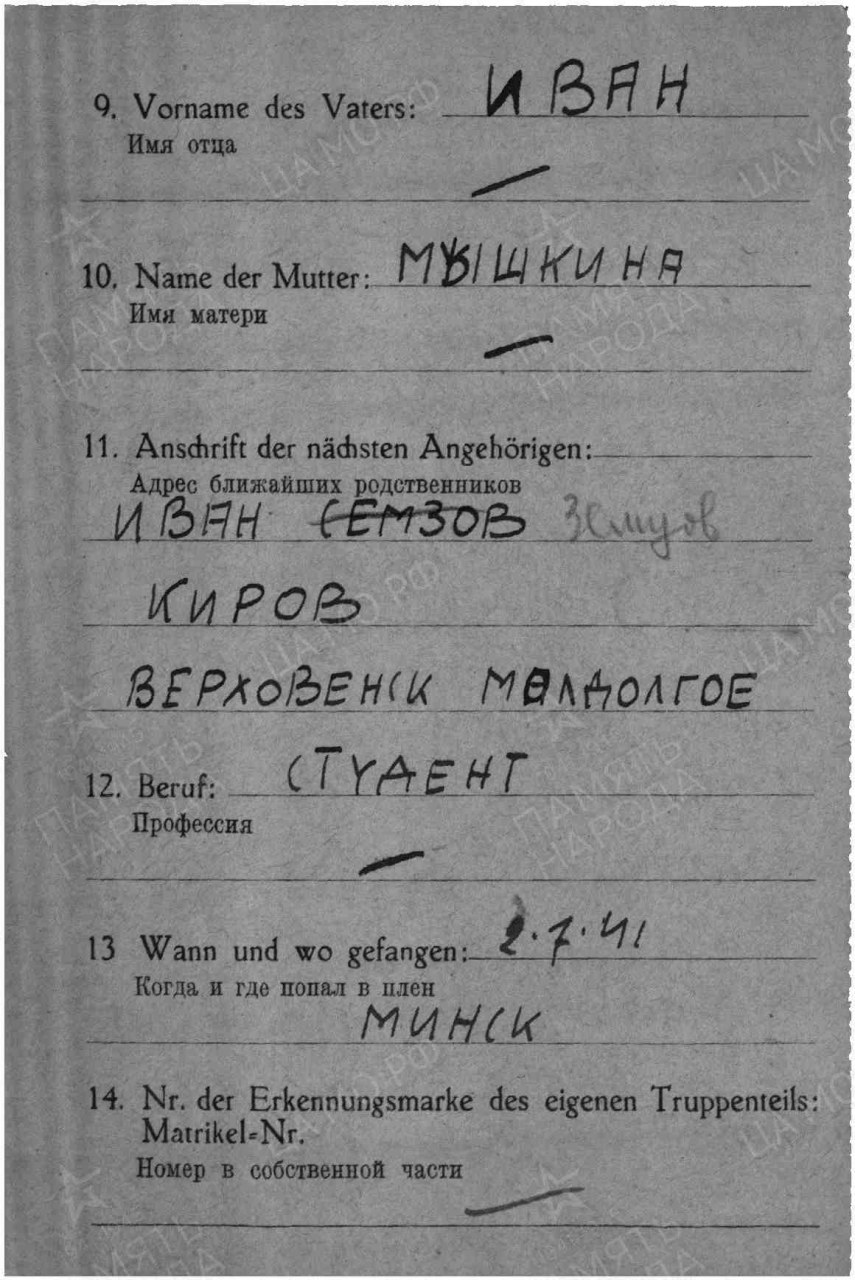 9. Vorname des Vaters: ИВАН
Имя отца
10. Name der Mutter: МЫШКИНА
Имя матери
11. Anschrift der nächsten Angehörigen:
Адрес ближайших родственников
ИВАН СЕМЗОВ Земцов
КИРОВ
ВЕРХОВЕНСК МАЛДОЛГОЕ
12. Beruf: СТУДЕНТ
Профессия
13 Wann und wo gefangen: 2.7.41
Когда и где попал в плен
МИНСК
14. Nr. der Erkennungsmarke des eigenen Truppenteils:
Matrikel-Nr.
Номер в собственной части